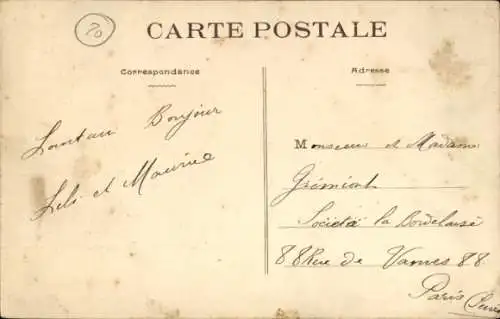 70
CARTE POSTALE
Correspondance
Adresse
Bonjour
et Maurice
Monsieur et Madame
Société la Bordelaise
88 Rue de Vannes 88
Paris